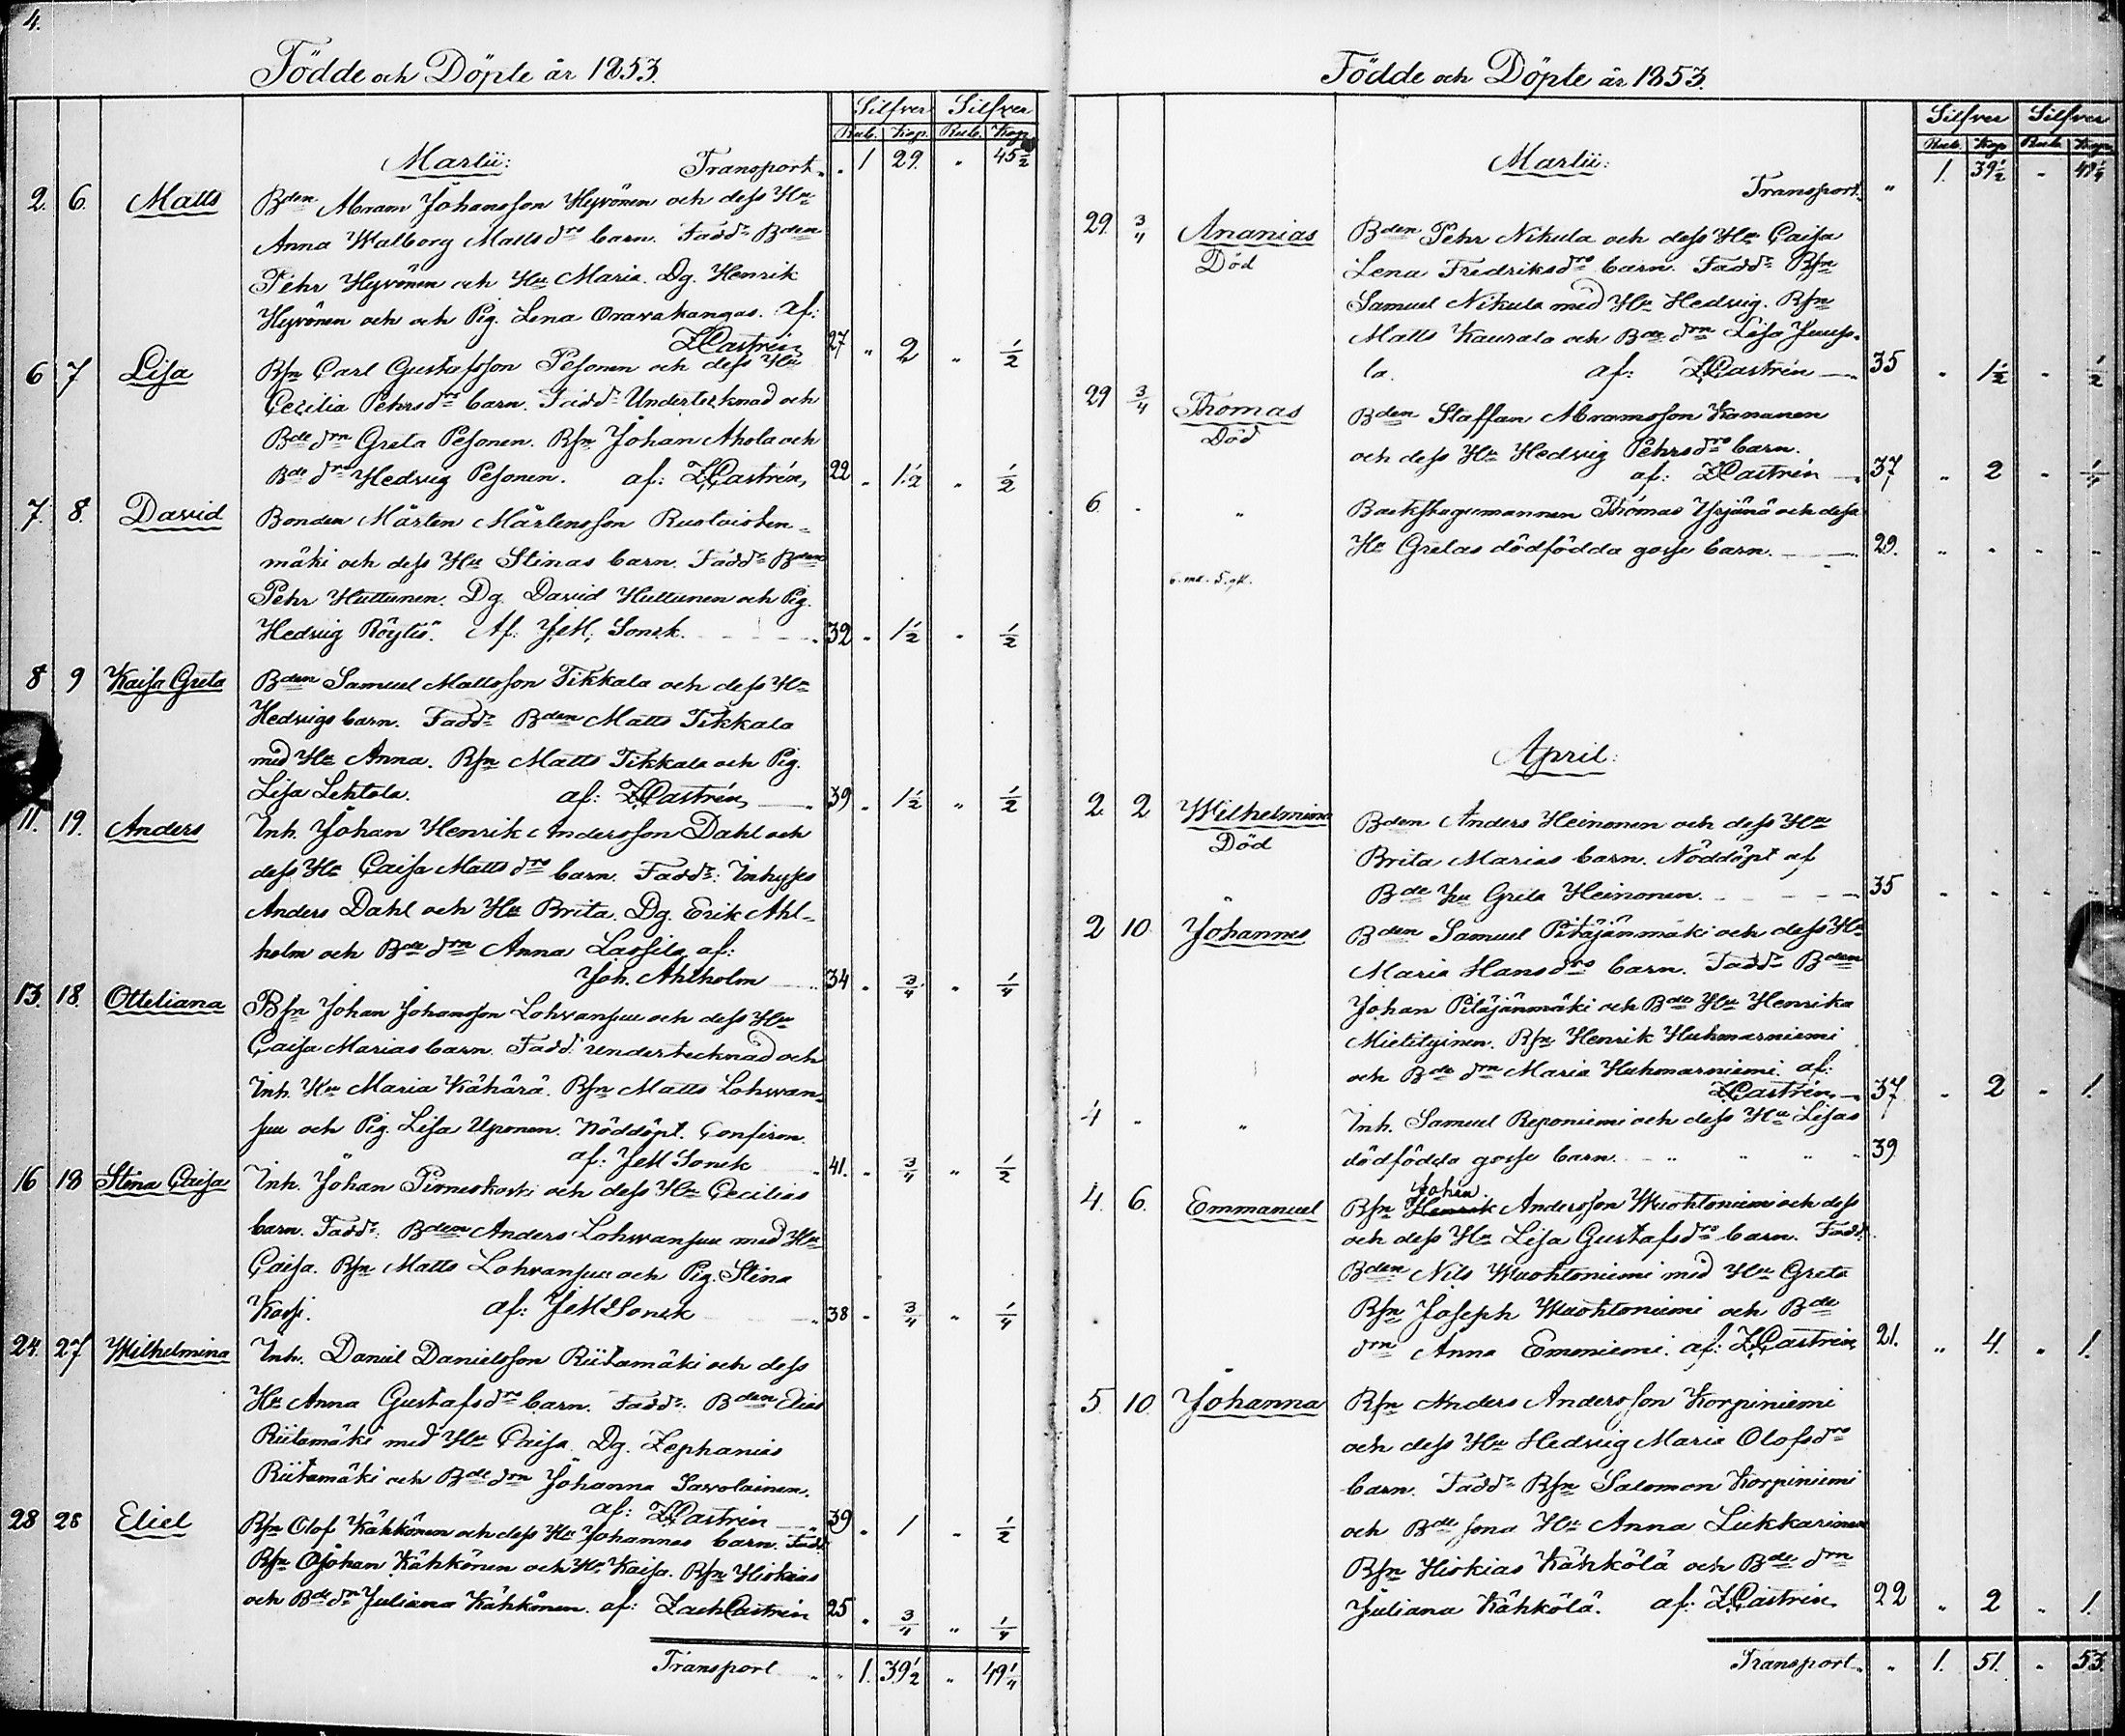 4.
Födde och Döpte år 1853.
Silfver Silfver
Rub. Kop. Rub. Kop.
Martii: Transport „ 1 29. „ 45½
2. 6. Matts Bden Abram Johansson Hyvönen och dess Hu
Anna Walborg Mattsdrs barn. Faddr Bden
Pehr Hyvönen och Hu Maria. Dg. Henrik
Hyvönen och och Pig. Lena Oravakangas. af:
ZCastrén, 27 „ 2 „ ½
6 7 Lisa Bsn Carl Gustafsson Pesonen och dess Hu
Cecilia Pehrsdrs barn. Faddr Undertecknad och
Bde drn Greta Pesonen. Bsn Johan Ahola och
Bde drn Hedvig Pesonen. af: ZCastrén, 22 „ 1½ „ ½
7. 8. David Bonden Mårten Mårtensson Rustoiohen-
mäki och dess Hu Stinas barn. Faddr Bden
Pehr Huttunen. Dg. David Huttunen och Pig.
Hedvig Röytiö. Af: J.M. Sonck. 32 „ 1½ „ ½
8 9 Kaisa Greta Bden Samuel Mattsson Tikkala och dess Hu
Hedvigs barn. Faddr Bden Matts Tikkala
med Hu Anna. Bsn Matts Tikkala och Pig.
Lisa Lehtola. af: ZCastrén, 39 „ 1½ „ ½
11. 19. Anders Inh. Johan Henrik Andersson Dahl och
dess Hu Caisa Mattsdrs barn. Faddr: Inhyses
Anders Dahl och Hu Brita. Dg. Erik Ahl-
holm och Bde drn Anna Lassila, af:
Joh. Ahlholm 34 „ ¾ „ ¼
13. 18. Otteliana Bsn Johan Johansson Lohvansuu och dess Hu
Caisa Marias barn. Fadd. Undertecknad och
Inh. Hu Maria Kähärä. Bsn Matts Lohwan-
suu och Pig. Lisa Uponen. Nöddöpt. Confirm.
af: JM Sonck 41. „ ¾ „ ½
16 18 Stina Caisa Inh. Johan Pirneskoski och dess Hu Cecilias
barn. Faddr: Bden Anders Lohwansuu med Hu
Caisa. Bsn Matts Lohvansuu och Pig. Stina
Kossi. af: JM Sonck 38 „ ¾ „ ¼
24. 27 Wilhelmina Inh. Daniel Danielsson Riitamäki och dess
Hu Anna Gustafsdrs barn. Faddr: Bden Elias
Riitamäki med Hu Caisa. Dg. Zephanias
Riitamäki och Bde drn Johanna Savolainen.
af: ZCastrén 39 „ 1 „ ½
28 28 Eliel Bsn Olof Kähkönen och dess Hu Johannas barn. Fadd.
Bsn Johan Kähkönen och Hu Kaisa. Bsn Hiskias
och Bde drn Juliana Kähkönen. af: Zach Castrén 25 „ ¾ „ ¼
Transport „ 1. 39½ „ 49¼
Födde och Döpte år 1853.
Silfver Silfver
Rub. Kop. Rub. Kop.
Martii:
Transport. „ 1. 39½ „ 49¼
29. 3/4 Ananias Bden Pehr Nikula och dess Hu Caisa
Död Lena Fredriksdrs barn. Faddr Bsn
Samuel Nikula med Hu Hedvig. Bsn
Matts Kaurala och Bde drn Lisa Juuso-
la. af: ZCastrén 35 „ 1½ „ ½
29 3/4 Thomas Bden Staffan Abramsson Kananen
Död och dess Hu Hedvig Pehrsdrs barn.
af: ZCastrén 37 „ 2 „ ¼
6. „ „ Backstugumannen Thomas Yrjänä och dess
Hu Gretas dödfödda gosse barn. 29. „ „ „ „
April:
2. 2 Wilhelmina Bden Anders Heinonen och dess Hu
Död Brita Marias barn. Nöddöpt af
Bde Hu Greta Heinonen. 35 „ „ „ „
2 10. Johannes Bden Samuel Pitäjänmäki och dess Hu
Maria Hansdrs barn. Faddr Bden
Johan Pitäjänmäki och Bde Hu Henrika
Mietityinen. Bsn Henrik Huhmarniemi
och Bde drn Maria Huhmarniemi. af:
ZCastrén. 37 „ 2 „ 1.
4 „ „ Inh. Samuel Reponiemi och dess Hu Lisas
dödfödda gosse barn. „ „ „ 39
Johan
4. 6. Emmanuel Bsn Henrik Andersson Wuohtoniemi och dess
och dess Hu Lisa Gustafsdrs barn. Faddr
Bden Nils Wuohtoniemi med Hu Greta
Bsn Joseph Wuohtoniemi och Bde
drn Anna Emoniemi. af: ZCastrén, 21. „ 4. „ 1.
5. 10. Johanna Bsn Anders Andersson Korpiniemi
och dess Hu Hedvig Maria Olofsdrs
barn. Faddr Bsn Salomon Korpiniemi
och Bde sons Hu Anna Liikkarinen
Bsn Hiskias Kähkölä och Bde drn
Juliana Kähkölä. af: ZCastrén. 22 „ 2 „ 1.
Transport „ „ 1. 51. „ 53.